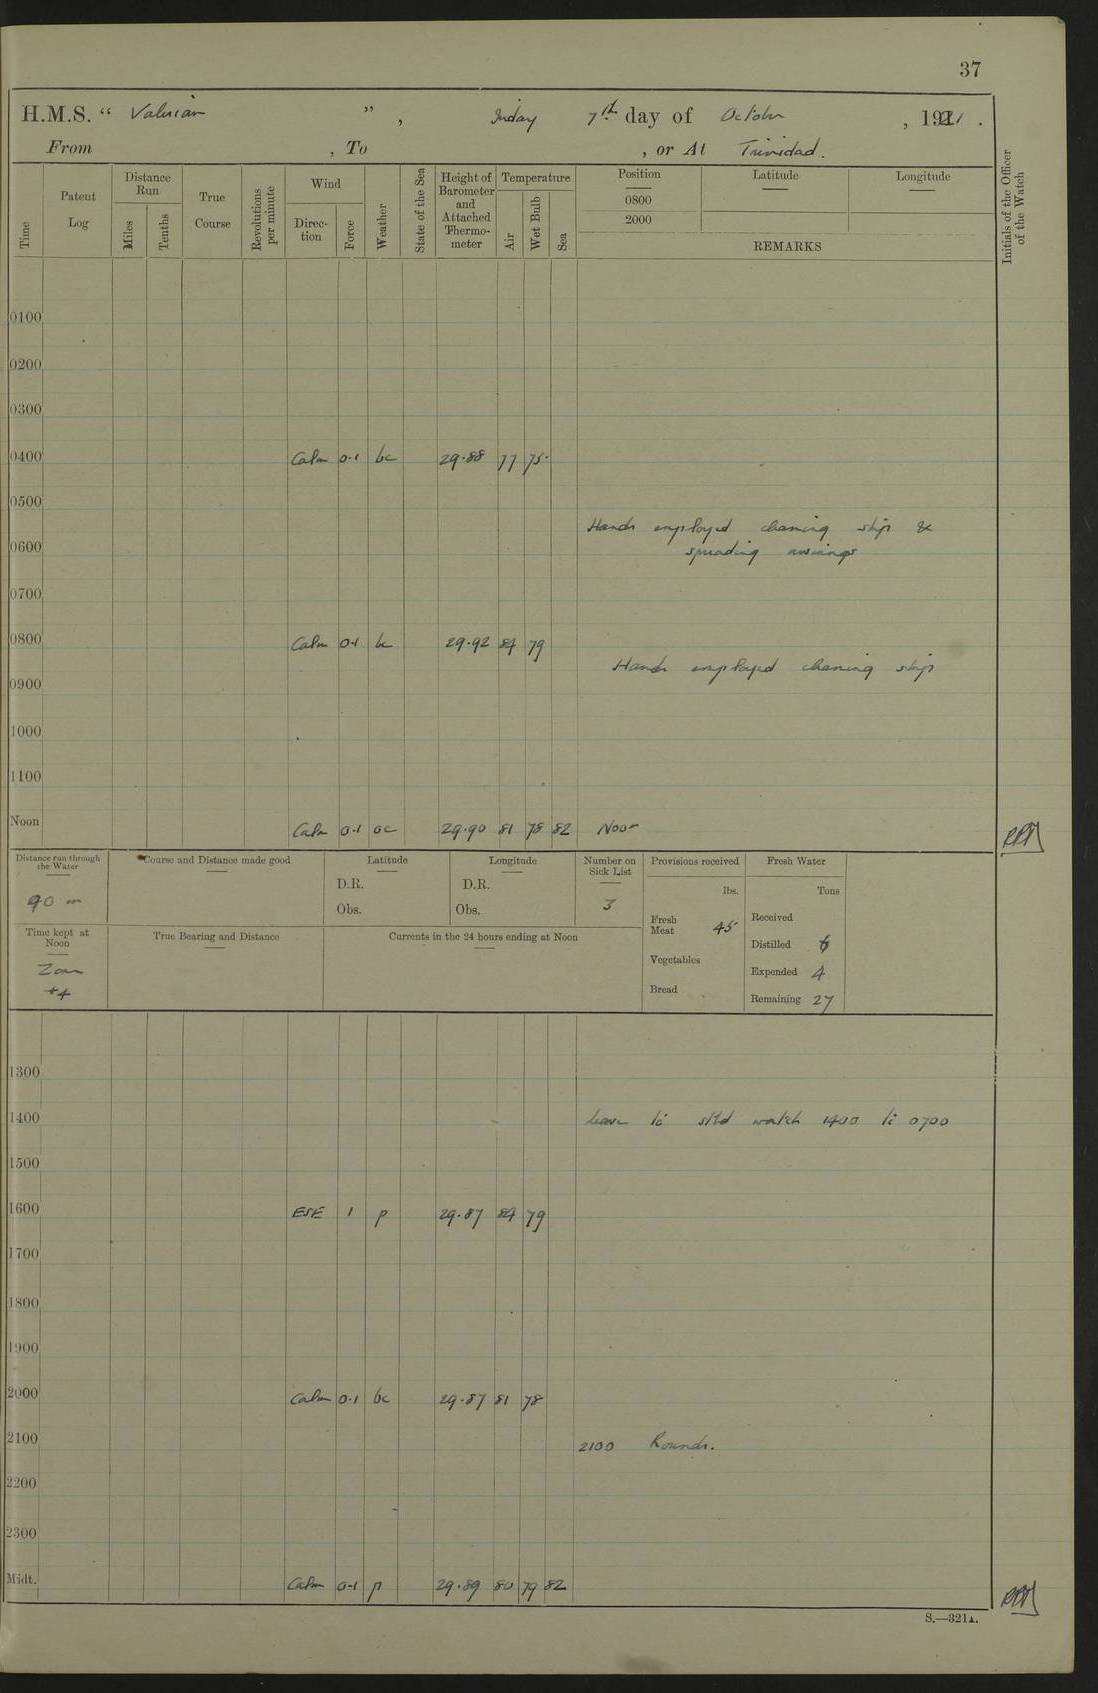 37
H.M.S. “ Valerian ” , Friday 7th day of October , 1921 .
From , To , or At Trinidad.
Time
Patent Log
Distance Run
Miles
Tenths
True Course
Revolutions per minute
Wind
Direc-tion
Force
Weather
State of the Sea
Height of Barometer and Attached Thermo-meter
Temperature
Air
Wet Bulb
Sea
Position
0800
2000
Latitude
Longitude
REMARKS
Initials of the Officer of the Watch
0100
0200
0300
0400 Calm 0.1 bc 29.88 77 75.
0500
Hands employed cleaning ship &
0600
spreading awnings
0700
0800 Calm 0.1 bc 29.92 84 79
Hands employed cleaning ship
0900
1000
1100
Noon Calm 0.1 oc 29.90 81 78 82 Noon
Distance run through the Water
Course and Distance made good
Latitude
D.R.
Obs.
Longitude
D.R.
Obs.
Number on Sick List
3
Provisions received
lbs.
Fresh Meat 45
Vegetables
Bread
Fresh Water
Tons
Received
Distilled 6
Expended 4
Remaining 27
Time kept at Noon
Zone
+4
True Bearing and Distance
Currents in the 24 hours ending at Noon
1300
1400 Leave to stbd watch 1400 to 0700
1500
1600 ESE 1 p 29.87 84 79
1700
1800
1900
2000 Calm 0.1 bc 29.87 81 78
2100 2100 Rounds.
2200
2300
Midt. Calm 0-1 p 29.89 80 79 82
S.—321A.